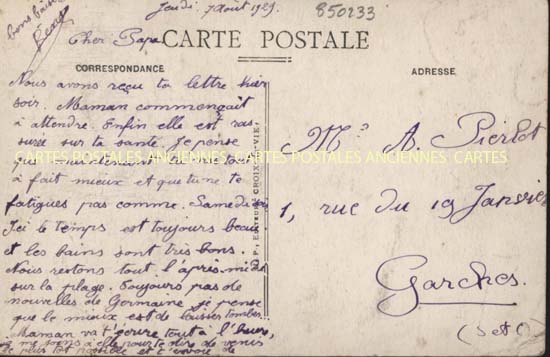 Jeudi 7 Août 1929.
850233
bons baisers
Cher Papa
CARTE POSTALE
CORRESPONDANCE
ADRESSE
Nous avons reçu ta lettre hier
soir. Maman commençait
à attendre. Enfin elle est ras
surée sur ta santé. Je pense
que maintenant tu es tout
à fait mieux et que tu ne te
fatigues pas comme Samedi soir
Ici le temps est toujours beau
et les bains sont très bons.
Nous restons tout l'après-midi
sur la plage. Toujours pas de
nouvelles de Germaine je pense
que le mieux est de laisser tomber.
Maman va t'écrire tout à l'heure
je me joins à elle pour te dire de venir
le plus tôt possible et t'envoie de
CROIX-DE-VIE
Mr A. Pierlot
1, rue du 19 Janvier
Garches.
(S et O)
CARTES POSTALES ANCIENNES CARTES POSTALES ANCIENNES CARTES